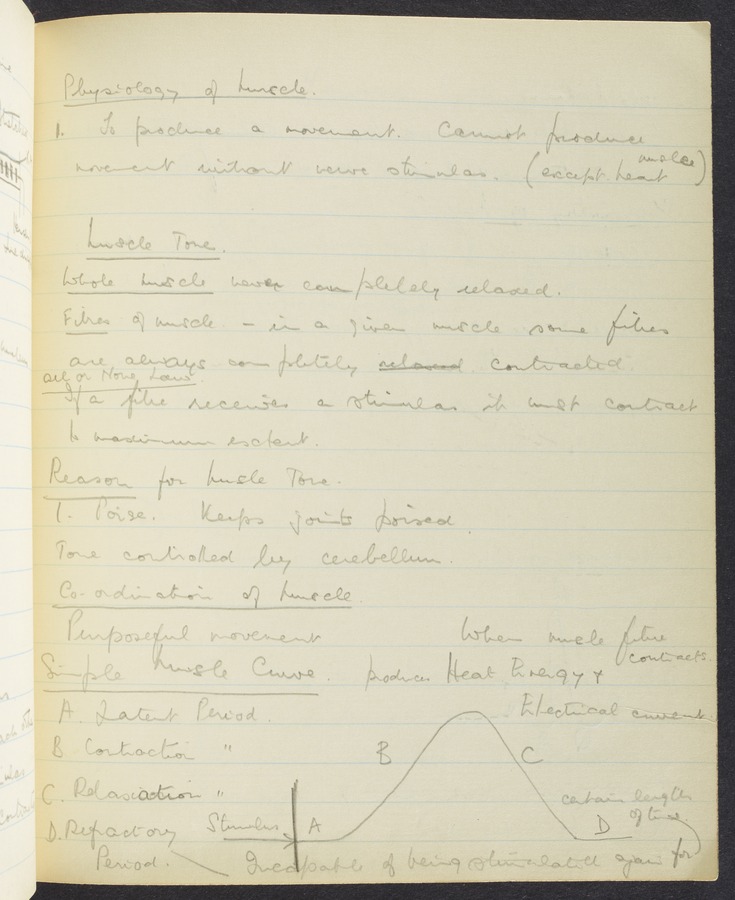 Physiology of Muscle.
1. To produce a movement. Cannot produce
movement without nerve stimulas. (except heart muscle)
Muscle Tone.
Whole Muscle never completely relaxed.
Fibres of muscle - in a given muscle some fibres
are always completely relaxed contracted
all or None Law.
If a fibre receives a stimulas it must contract
to maximum extent.
Reason for Muscle Tone.
1. Poise. Keeps joints poised
Tone controlled by cerebellum.
Co-ordination of Muscle.
Purposeful movement
When muscle fibre contracts
Simple Muscle Curve. produces Heat Energy &
A. Latent Period. Electrical current.
B Contraction "
B C
C. Relaxation "
certain length of time.
D. Refractory Stimulus A D
Period. Incapable of being stimulated again for